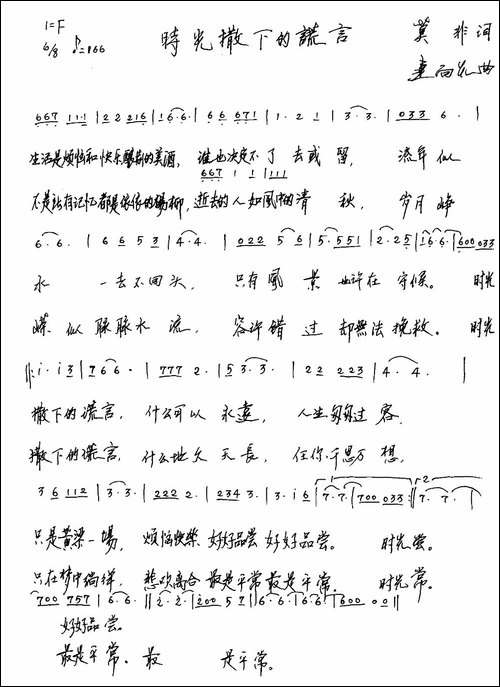 1=F
6/8 ♪=166
時光撒下的謊言
莫非词
曲
667 111 | 22 216 | 16·6· | 66 671 | 1· 2 1 | 3· 3· | 033 6 · |
生活是烦恼和快乐酿制的美酒, 谁也决定不了 去或留, 流年似
667 1 1 | 111
不是所有记忆都是依依的杨柳, 逝去的人如風中的清秋, 岁月峥
6· 6· | 6 6 5 3 | 4· 4· | 022 5 6 | 5· 551 | 2· 25 | 16·6· | 600 033
水 一去不回头, 只有風景也许在守候。 时光
嵘似脉脉水流, 容许错过却無法挽救。 时光
‖: i· i 3 | 7 6 6 · | 777 2· | 5 3· 3· | 22 223 | 4· 4· |
撒下的谎言, 什么可以永遠, 人生匆匆过客,
撒下的谎言, 什么地久天長, 任你千思万想,
3 6 112 | 3· 3· | 222 2· | 234 3· | 3· i 6 | 7· 7· | 700 033 :‖ 7· 7· |
只是黄粱一場, 烦恼快樂, 好好品尝 好好品尝。 时光尝。
只在梦中徜徉, 悲欢离合 最是平常 最是平常。 时光常。
700 757 | 6· 6· ‖ 2· 2· | 200 5 7 | 6· 6· | 6· 6· | 600 0 0 ‖
好好品尝。
最是平常。最 是平常。